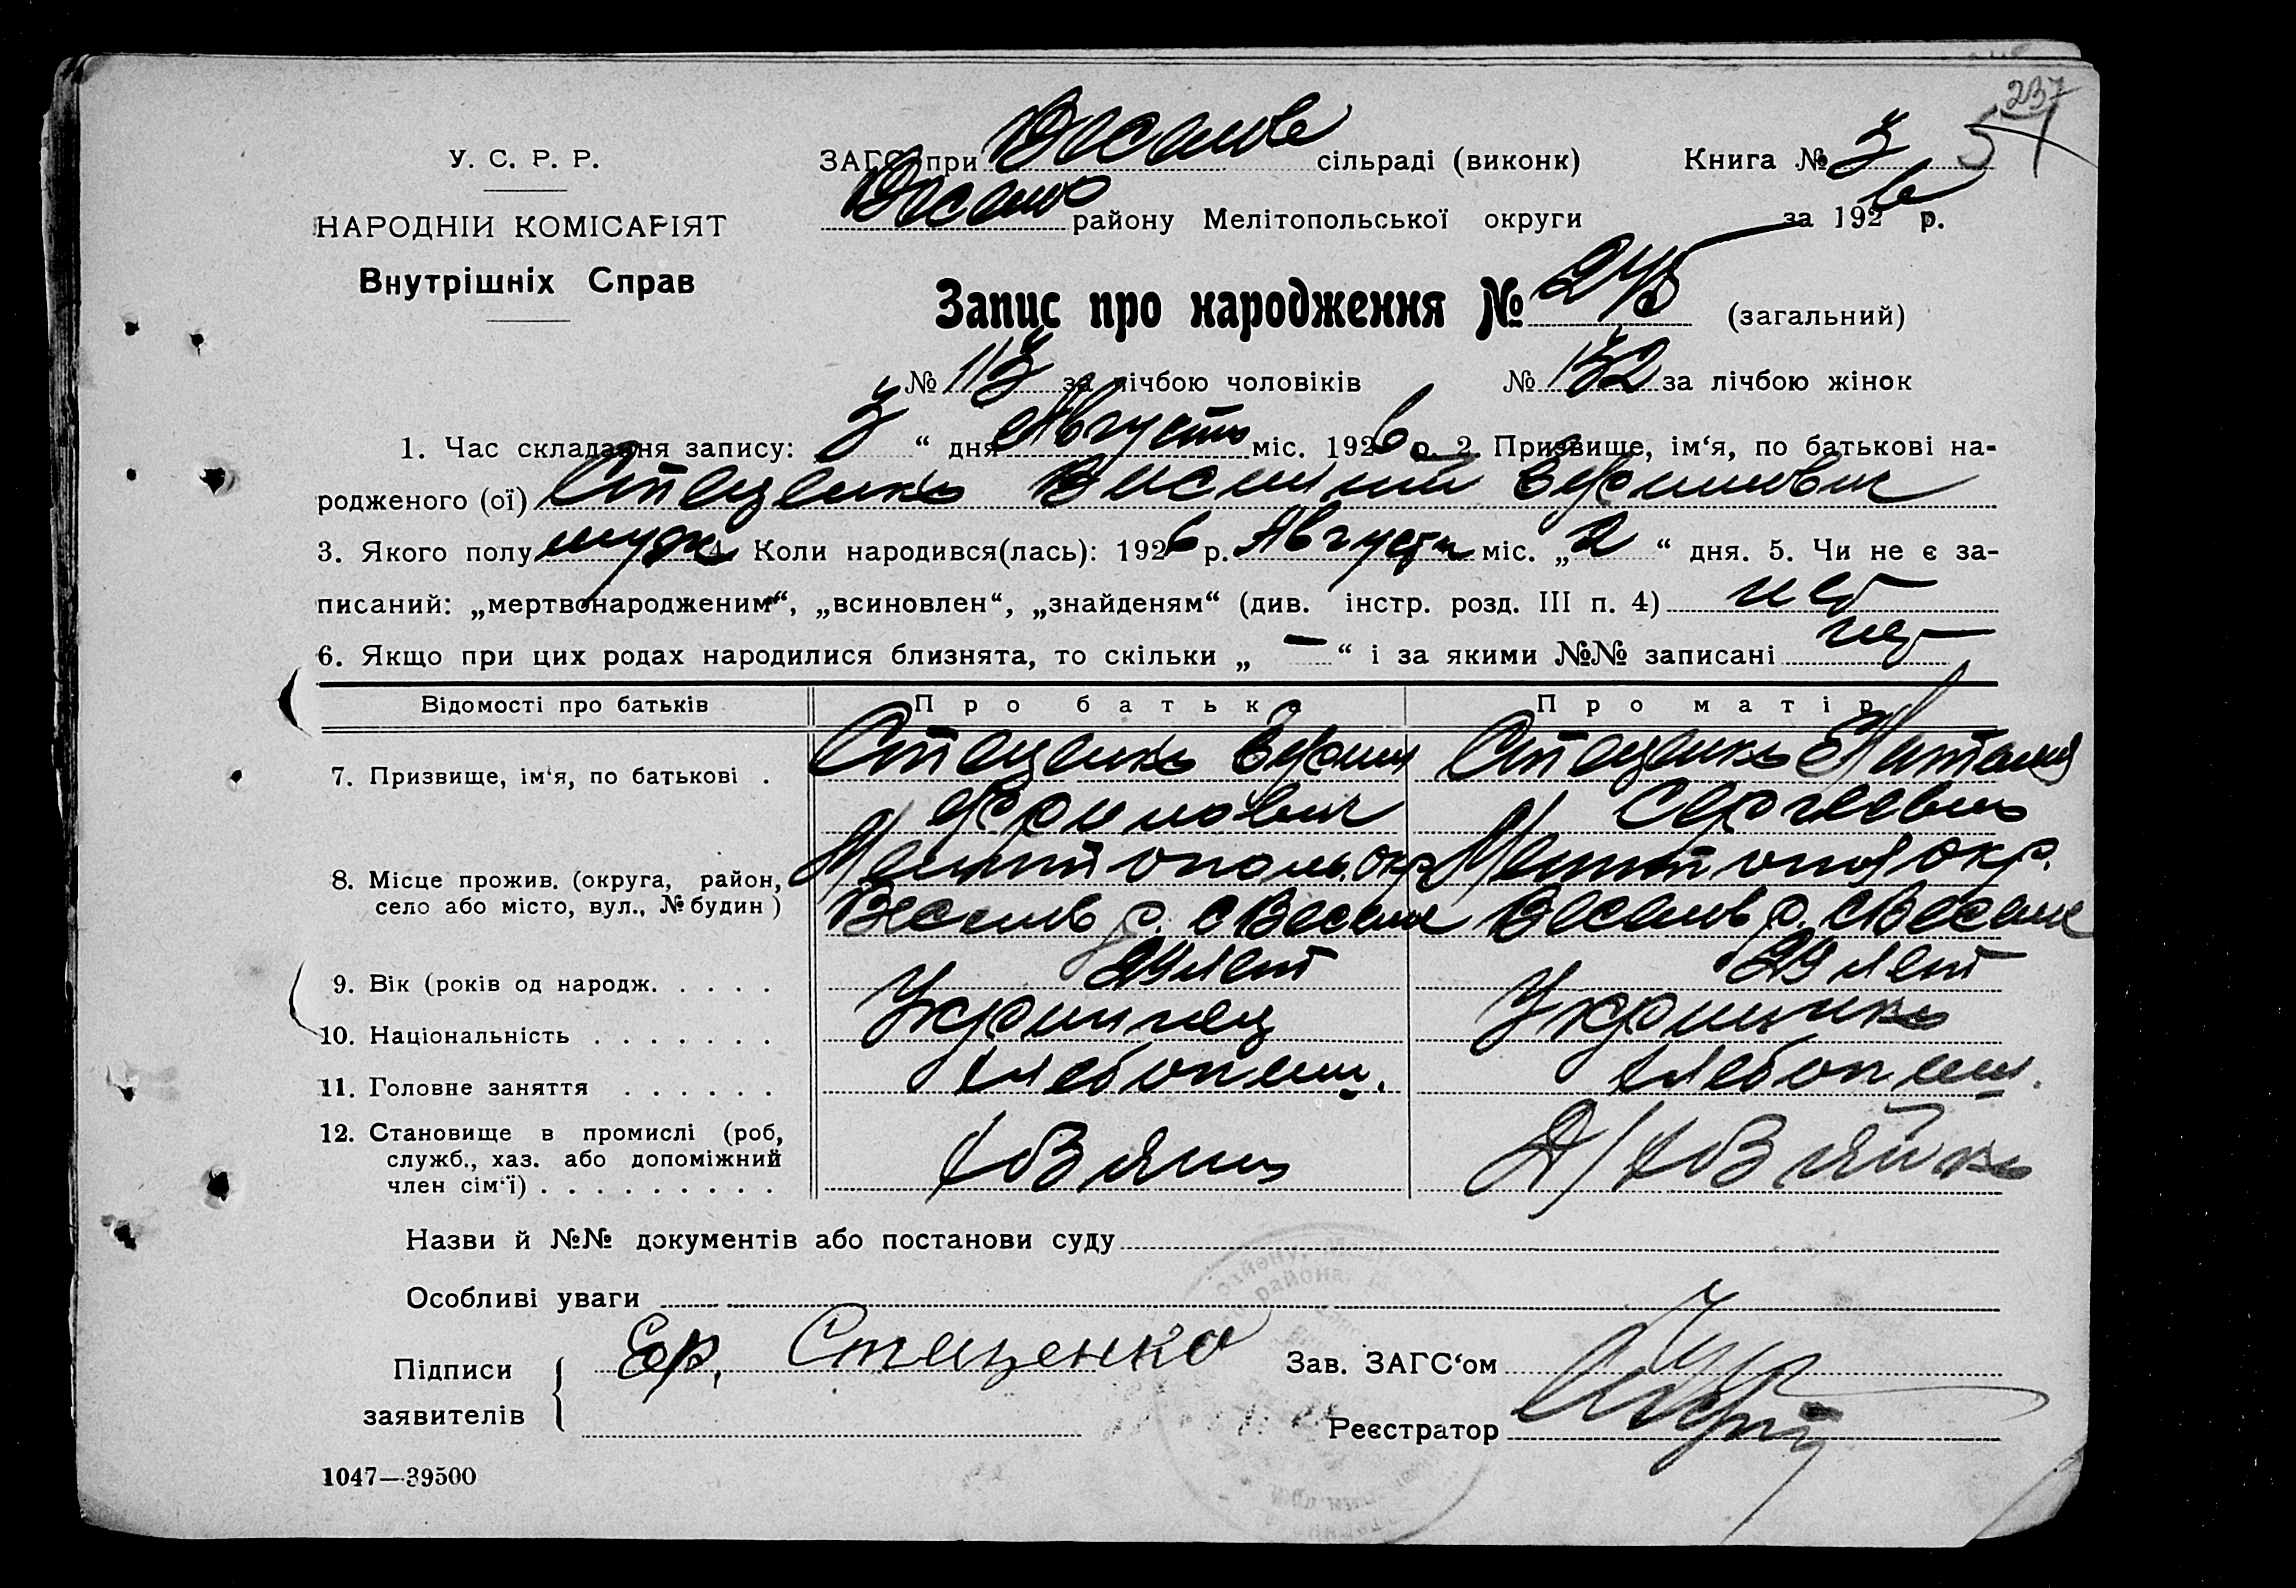 237
51
У. С. Р. Р.
НАРОДНІЙ КОМІСАРІЯТ
Внутрішніх Справ
ЗАГС при сільраді (виконк) Книга № 3
району Мелітопольської округи за 1926 р.
Запис про народження № 245 (загальний)
№ 113 за лічбою чоловіків № 132 за лічбою жінок
1. Час складання запису: 3 “ дня Августа міс. 1926 р. 2. Призвище, ім‘я, по батькові на-
родженого (ої) Стаценко Василий Ефимович
3. Якого полу муж 4. Коли народився(лась): 1926 р. Августа міс. „ 2 “ дня. 5. Чи не є за-
писаний: „мертвонародженим“, „всиновлен“, „знайденям“ (див. інстр. розд. III п. 4) нет
6. Якщо при цих родах народилися близнята, то скільки „ — “ і за якими №№ записані нет
Відомості про батьків Про батька Про матір
7. Призвище, ім‘я, по батькові . Стаценко Стаценко Наталия
Сергеевна
8. Місце прожив. (округа, район, Мелитополь. окр Мелитопол окр.
село або місто, вул., № будин ) Весел р. с Веселое Весел р. с Веселое
9. Вік (років од народж. . . . . 29 лет 29 лет
10. Національність . . . . . . . Украинец Украинка
11. Головне заняття . . . . . . Хлебопаш. Хлебопаш.
12. Становище в промислі (роб, служб., хаз. або допоміжний член сім‘ї) . . . . . . . . . Хозяин Д/Хозяйка
Назви й №№ документів або постанови суду
Особливі уваги
Підписи заявителів { Еф, Стаценко
Зав. ЗАГС‘ом
Реєстратор
1047—39500